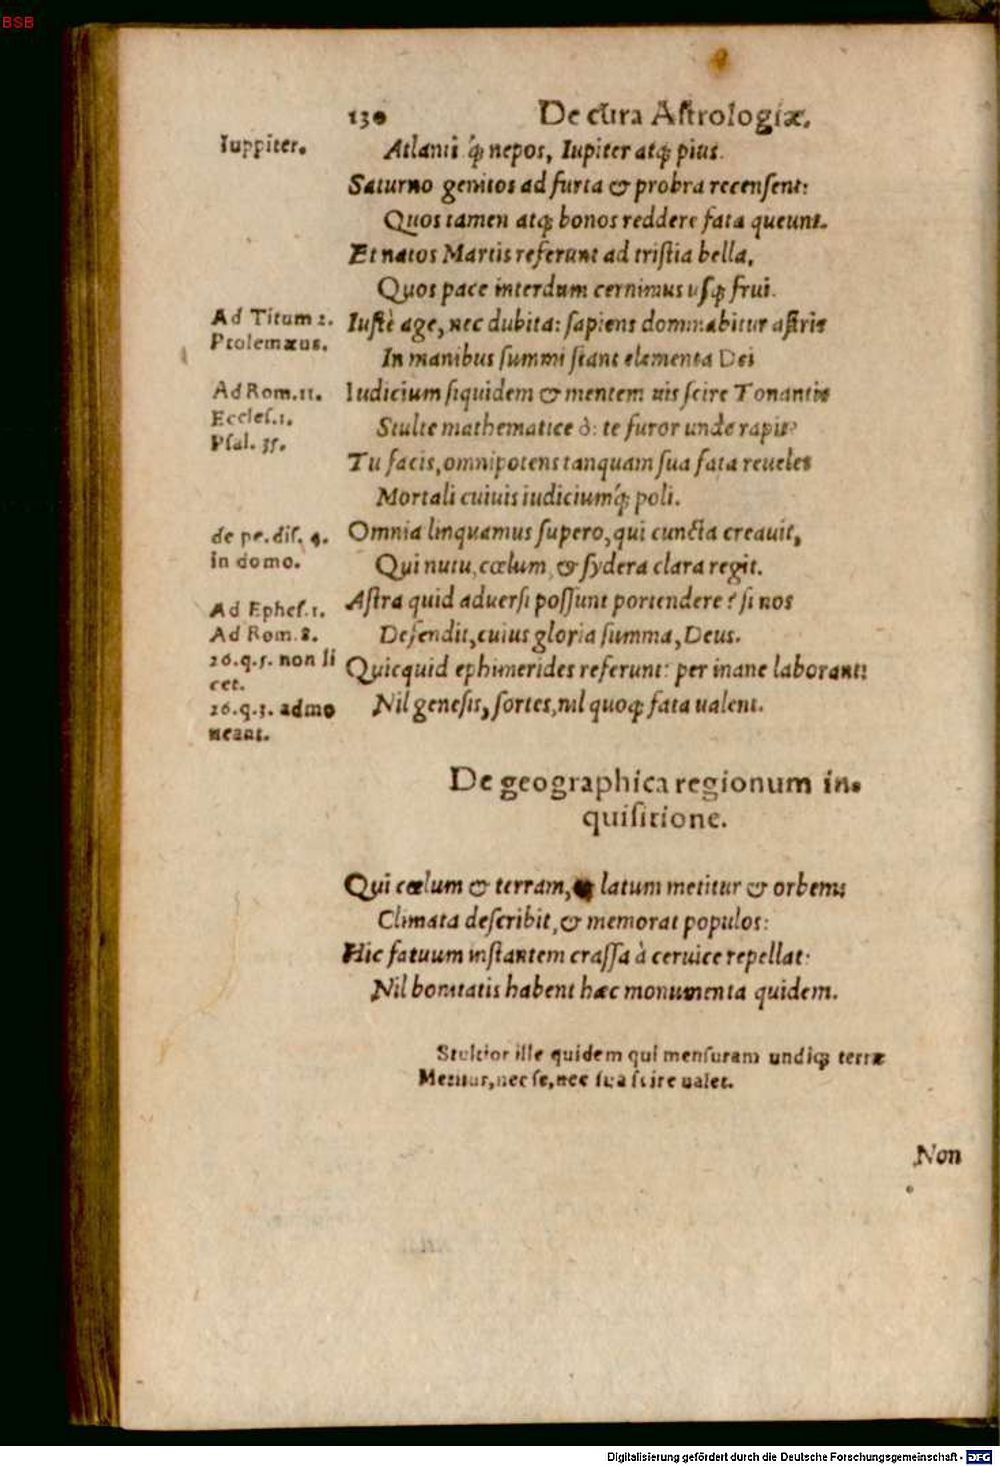 BSB
130 De cura Astrologiæ.
Iuppiter.
Atlanti q́ꝫ nepos, Iupiter atqꝫ pius.
Saturno genitos ad furta & probra recensent:
Quos tamen atqꝫ bonos reddere fata queunt.
Et natos Martis referunt ad tristia bella,
Quos pace interdum cernimus usqꝫ frui.
Ad Titum 2.
Ptolemæus.
Iustè age, nec dubita: sapiens dominabitur astris
In manibus summi stant elementa Dei
Ad Rom. 11.
Eccles. 1.
Psal. 35.
Iudicium siquidem & mentem uis scire Tonantis
Stulte mathematice ò: te furor unde rapit?
Tu facis, omnipotens tanquam sua fata reuelet
Mortali cuiuis iudiciumq́ꝫ poli.
de pe. dis. 4.
in domo.
Omnia linquamus supero, qui cuncta creauit,
Qui nutu, cœlum, & sydera clara regit.
Ad Ephes. 1.
Ad Rom. 8.
Astra quid aduersi possunt portendere? si nos
Defendit, cuius gloria summa, Deus.
26. q. 5. non li
cet.
26. q. 5. admo
neant.
Quicquid ephimerides referunt: per inane laborant:
Nil genesis, sortes, nil quoqꝫ fata ualent.
De geographica regionum in-
quisitione.
Qui cœlum & terram, latum metitur & orbem;
Climata describit, & memorat populos:
Hic fatuum instantem crassa à ceruice repellat:
Nil bonitatis habent hæc monumenta quidem.
Stultior ille quidem qui mensuram undiqꝫ terræ
Metitur, nec se, nec sua scire ualet.
Non
Digitalisierung gefördert durch die Deutsche Forschungsgemeinschaft - DFG